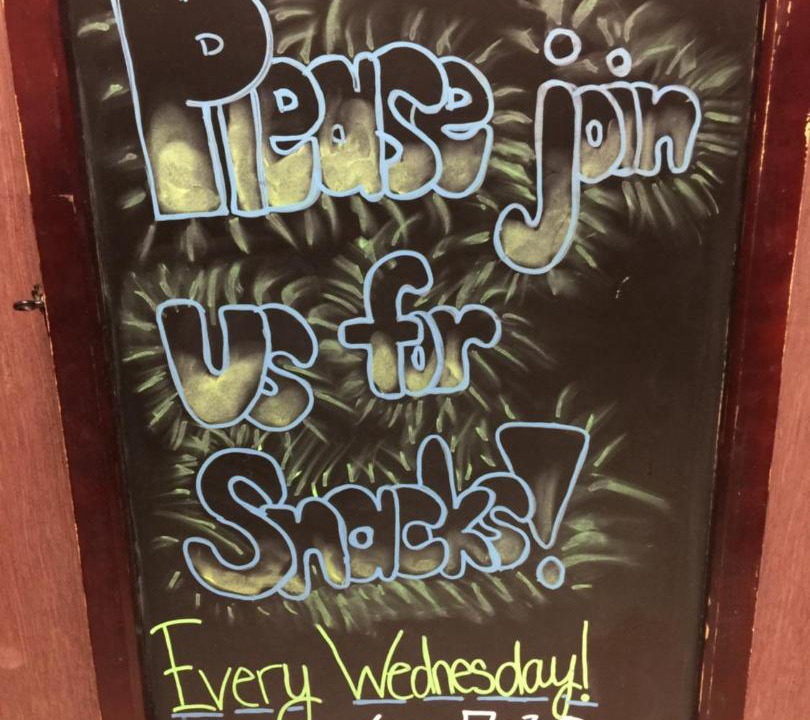 Please join
us for
Snacks!
Every Wednesday!